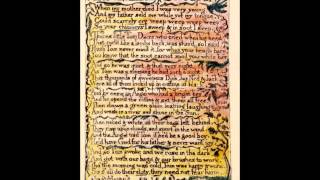 When my mother died I was very young,
And my father sold me while yet my tongue,
Could scarcely cry weep weep weep weep,
So your chimneys I sweep & in soot I sleep.
Theres little Tom Dacre, who cried when his head
That curl'd like a lambs back, was shav'd, so I said,
Hush Tom never mind it, for when your head's bare,
You know that the soot cannot spoil your white hair
And so he was quiet, & that very night,
As Tom was a sleeping he had such a sight,
That thousands of sweepers Dick, Joe, Ned & Jack
Were all of them lock'd up in coffins of black,
And by came an Angel who had a bright key,
And he open'd the coffins & set them all free.
Then down a green plain leaping laughing they run
And wash in a river and shine in the Sun.
Then naked & white, all their bags left behind,
They rise upon clouds, and sport in the wind.
And the Angel told Tom if he'd be a good boy,
He'd have God for his father & never want joy.
And so Tom awoke and we rose in the dark
And got with our bags & our brushes to work.
Tho' the morning was cold, Tom was happy & warm,
So if all do their duty, they need not fear harm.